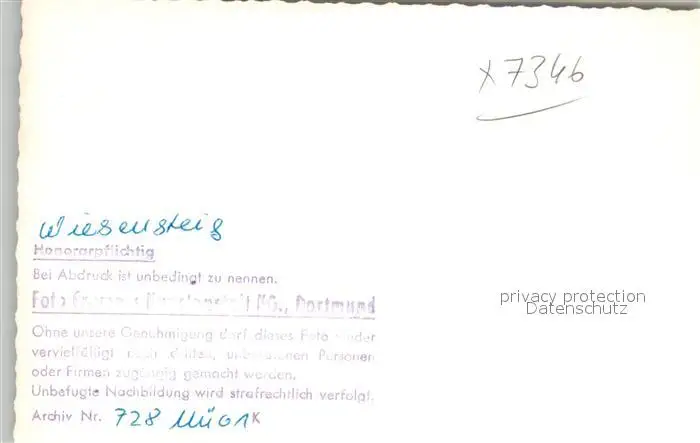 x7346
Wiesensteig
Honorarpflichtig
Bei Abdruck ist unbedingt zu nennen.
Foto Kunstanstalt KG., Dortmund
privacy protection
Datenschutz
Ohne unsere Genehmigung darf dieses Foto weder
vervielfältigt noch dritten, unbefugten Personen
oder Firmen zugängig gemacht werden.
Unbefugte Nachbildung wird strafrechtlich verfolgt.
Archiv Nr. 728 K